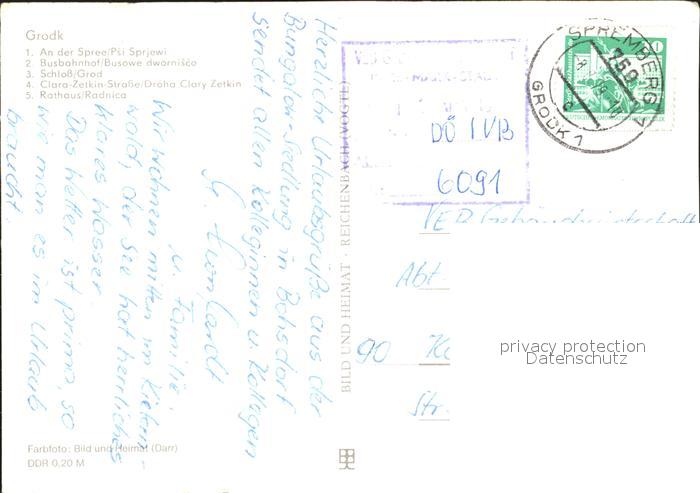 Grodk
1. An der Spree/Pśi Sprjewi
2. Busbahnhof/Busowe dwornišćo
3. Schloß/Grod
4. Clara-Zetkin-Straße/Droha Clary Zetkin
5. Rathaus/Radnica
Herzliche Urlaubsgrüße aus der
Bungalow-Siedlung in Bohsdorf
sendet allen Kolleginnen u. Kollegen
u. Familie.
Wir wohnen mitten im Kiefern-
wald, der See hat herrliches
klares Wasser.
Das Wetter ist prima, so
wie man es im Urlaub
braucht.
Farbfoto: Bild und Heimat (Darr)
DDR 0,20 M
BILD UND HEIMAT · REICHENBACH (VOGTL)
DÖ I VB
6091
SPREMBERG 1
759
GRODK 1
10
VEB Gebäudewirtschaft
Abt
90
Str.
privacy protection
Datenschutz